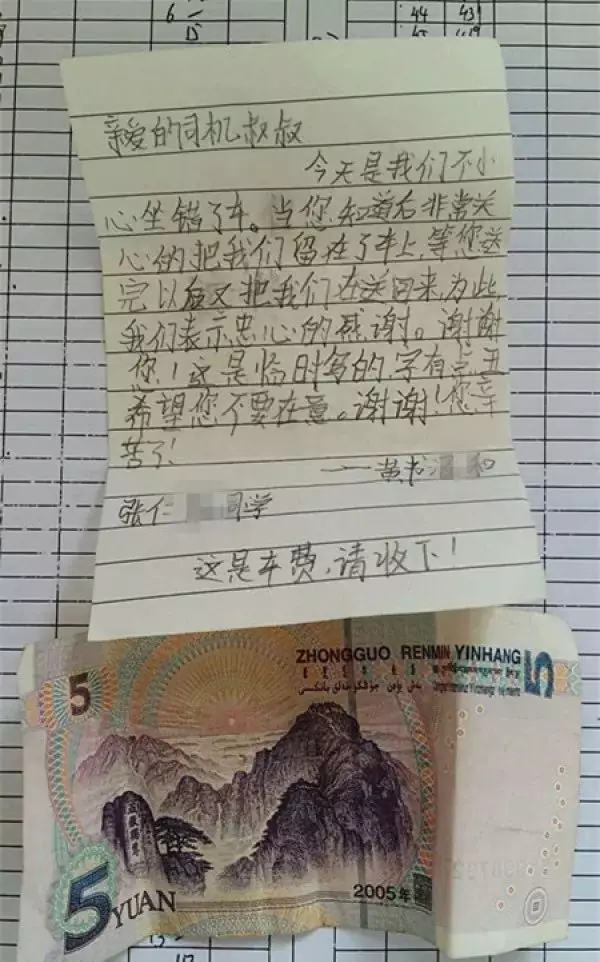 6
15
44 43
45 419
亲爱的司机叔叔
今天是我们不小
心坐错了车。当您知道后非常关
心的把我们留在了车上,等您送
完以后又把我们在送回来,为此,
我们表示忠心的感谢。谢谢
您!这是临时写的,字有点丑
希望您不要在意。谢谢!您辛
苦了!
——黄书 和
张仁 同学
这是车费,请收下!
ZHONGGUO RENMIN YINHANG
5
5
5
YUAN
2005年